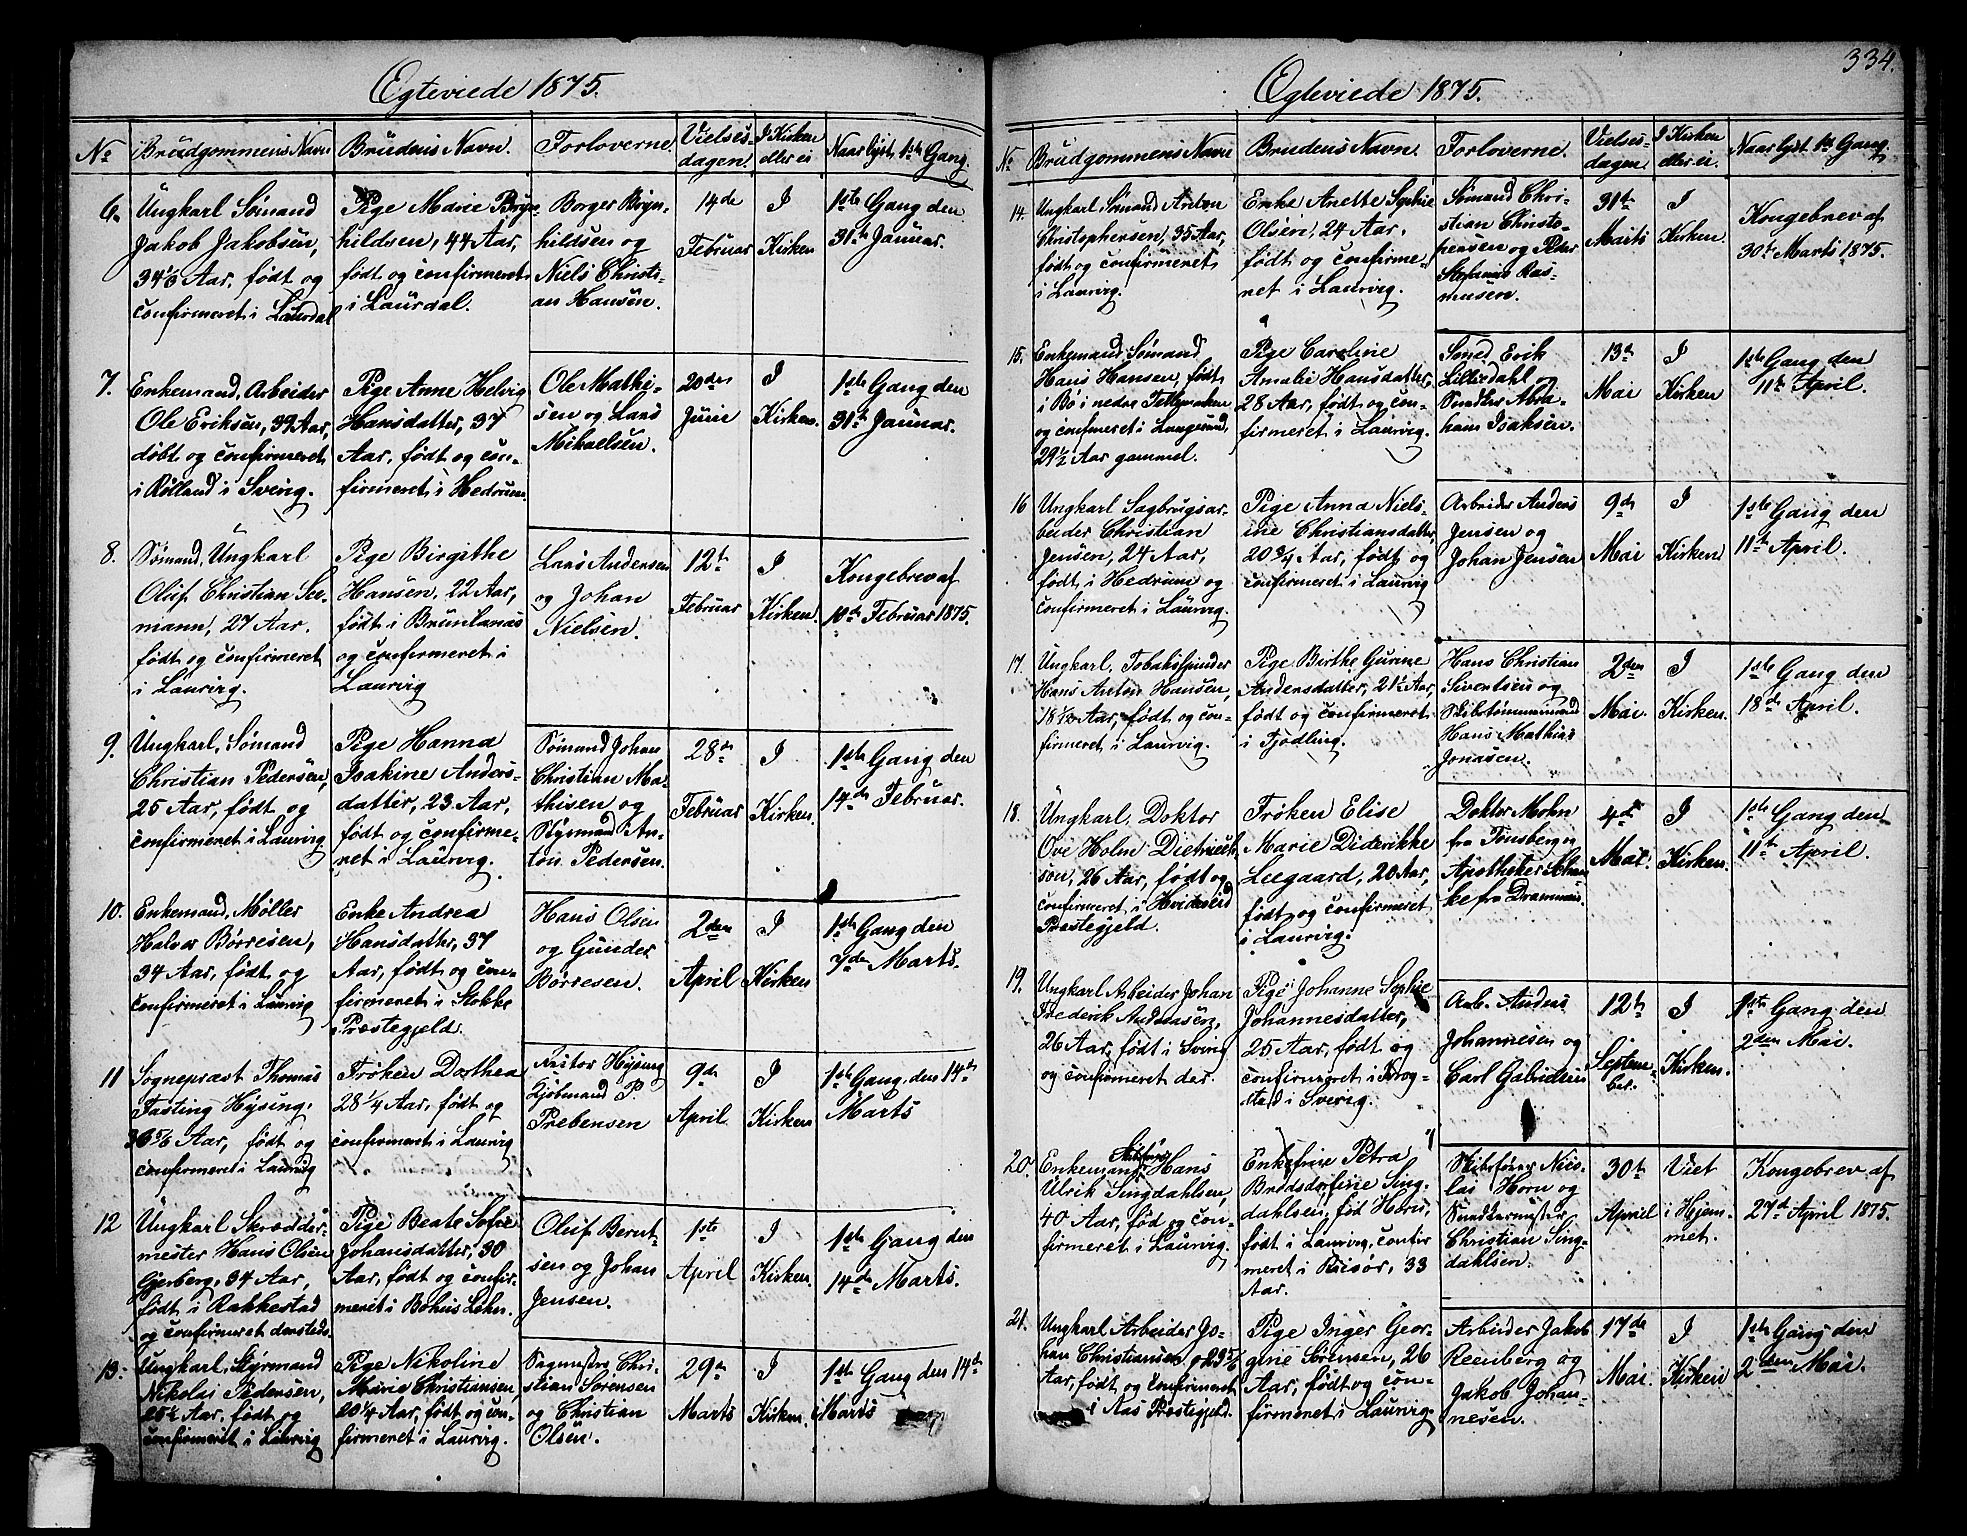 Egteviede 1875.
No
Brudgommens Navn
Brudens Navn.
Forloverne.
Vielses-
dagen.
I Kirken
eller ei
Naar lyst 1ste Gang.
6.
Ungkarl Sømand
Jakob Jakobsen,
34 1/2 Aar, født og
confirmeret i Laurdal
Pige Marie Bryn-
hildsen, 44 Aar,
født og confirmeret
i Laurdal.
Borger Bryn-
hildsen og
Niels Christi-
an Hansen.
14de
Februar
I
Kirken
1ste Gang den
31te Januar.
7.
Enkemand, Arbeider
Ole Eriksen, 39 Aar,
døbt og confirmeret
i Rølland i Sverig.
Pige Anne Helvig
Hansdatter, 37
Aar, født og con-
firmeret i Hedrum.
Ole Mathi-
sen og Lars
Mikaelsen.
20de
Juni
I
Kirken.
1ste Gang den
31te Januar.
8.
Sømand, Ungkarl
Oluf Christian See-
mann, 27 Aar.
født og confirmeret
i Laurvig.
Pige Birgithe
Hansen, 22 Aar,
født i Brunlanæs
og confirmeret i
Laurvig
Lars Andersen
og Johan
Nielsen.
12te
Februar
I
Kirken.
Kongebrev af
10de Februar 1875.
9.
Ungkarl, Sømand
Christian Pedersen,
25 Aar, født og
confirmeret i Laurvig
Pige Hanna
Isakine Anders-
datter, 23 Aar,
født og confirme-
ret i Laurvig.
Sømand Johan
Christian Ma-
thisen og
Styrmand An-
ton Pedersen.
28de
Februar
I
Kirken.
1ste Gang den
14de Februar.
10.
Enkemand, Møller
Halvor Børresen,
34 Aar, født og
confirmeret i Laurvig
Enke Andrea
Hansdatter, 37
Aar, født og con-
firmeret i Stokke
Præstegjeld.
Hans Olsen
og Gunder
Børresen.
2den
April
I
Kirken
1ste Gang den
7de Marts.
11
Sognepræst Thomas
Fasting Hysing,
36 5/6 Aar, født og
confirmeret i Laurvig
Frøken Dorthea
28 1/4 Aar, født og
confirmeret i Laurvig
Hysing
Kjøbmand P.
Prebensen
9de
April
I
Kirken
1ste Gang den 14de
Marts
12
Ungkarl Skrædder-
mester Hans Olsen
Gjerberg, 34 Aar,
født i Rakkestad
og confirmeret densteds.
Pige Beate Sofie
Johansdatter, 30
Aar, født og confir-
meret i Bohus Lehn.
Oluf Bernt-
sen og Johan
Jensen.
1ste
April
I
Kirken.
1ste Gang den
14de Marts.
13.
Ungkarl, Styrmand
Nikolai Pedersen,
25 1/2 Aar, født og
confirmeret i Laurvig
Pige Nikoline
Marie Christiansen,
20 1/4 Aar, født og con-
firmeret i Laurvig.
Sagmester Chri-
stian Sørensen
og Christian
Olsen.
29de
Marts
I
Kirken.
1ste Gang den 14de
Marts
334.
Egteviede 1875.
No
Brudgommens Navn
Brudens Navn.
Forloverne.
Vielses-
dagen.
I Kirken
eller ei.
Naar lyst 1ste Gang.
14.
Ungkarl, Sømand Anton
Christophersen, 35 Aar,
født og confirmeret
i Laurvig.
Enke Anette Sophie
Olsen, 24 Aar,
født og confirme-
ret i Laurvig.
Sømand Chri-
stian Christo-
phersen og Peter
Stefanus Ras-
musen.
31te
Marts
I
Kirken.
Kongebrev af
30te Marts 1875.
15.
Enkemand, Sømand
Hans Hansen, født
i Bø i nedre Tellemarken
og confirmeret i Langesund,
29 1/2 Aar gammel.
Pige Caroline
Amalie Hansdatter,
28 Aar, født og con-
firmeret i Laurvig.
Smed Erik
Lilliedahl og
Snedker Abra-
ham Isaksen.
13de
Mai
I
Kirken
1ste Gang den
11te April.
16
Ungkarl Sagbrugsar-
beider Christian
Jensen, 24 Aar,
født i Hedrum og
confirmeret i Laurvig.
Pige Anna Niels-
ine Christiansdatter,
20 3/4 Aar, født og
confirmeret i Laurvig
Arbeider Anders
Jensen og
Johan Jensen
9de
Mai
I
Kirken
1ste Gang den
11te April.
17.
Ungkarl, Tobakspinder
Hans Anton Hansen,
Aar, født og con-
firmeret i Laurvig.
Pige Birthe Gurine
Andersdatter, 21 1/2 Aar,
født og confirmeret
i Tjødling.
Hans Christian
Sivertsen og
Skibstømmermand
Hans Mathias
Jonasen.
2den
Mai.
I
Kirken.
1ste Gang den
18de April.
18.
Ungkarl, Doktor
Ove Holm Dietrich-
son, 26 Aar, født og
confirmeret i Hvideseid
Præstegjeld.
Frøken Elise
Marie Diderikke
Leegaard, 20 Aar,
født og confirmeret
i Laurvig.
Doktor Mohn
fra Tønsberg og
Apotheker
fra Drammen.
4de
Mai.
I
Kirken.
1ste Gang den
11te April.
19.
Ungkarl Arbeider Johan
Frederik Andersen,
26 Aar, født i Sverig
og confirmeret der.
Pige Johanne Sophie
Johannesdatter,
25 Aar, født og
confirmeret i Krog-
stad i Sverig.
Arb. Anders
Johannesen og
Carl Gabrielsen
12te
Septem-
ber.
I
Kirken.
1ste Gang den
2den Mai.
20.
Enkemand Hans
Ulrik Singdahlsen,
40 Aar, fød og con-
firmeret i Laurvig.
Enkefrue Petra
Bredsdorfine Sing-
dahlsen, fød Horn,
født i Laurvig, confir
meret i Risør, 33
Aar.
Skibsfører Nico-
lai Horn og
Snedkermester
Christian Sing-
dahlsen.
30te
April
Viet
i Hjem-
met.
Kongebrev af
27de April 1875.
21.
Ungkarl Arbeider Jo-
han Christiansen, 23 5/6
Aar, født og confirmeret
i Aas Præstegjeld.
Pige Inger Geor-
gine Sørensen, 26
Aar, født og con-
firmeret i Laurvig.
Arbeider Jakob
Reenberg og
Jakob Johan-
nesen.
17de
Mai.
I
Kirken
1ste Gang den
2den Mai.